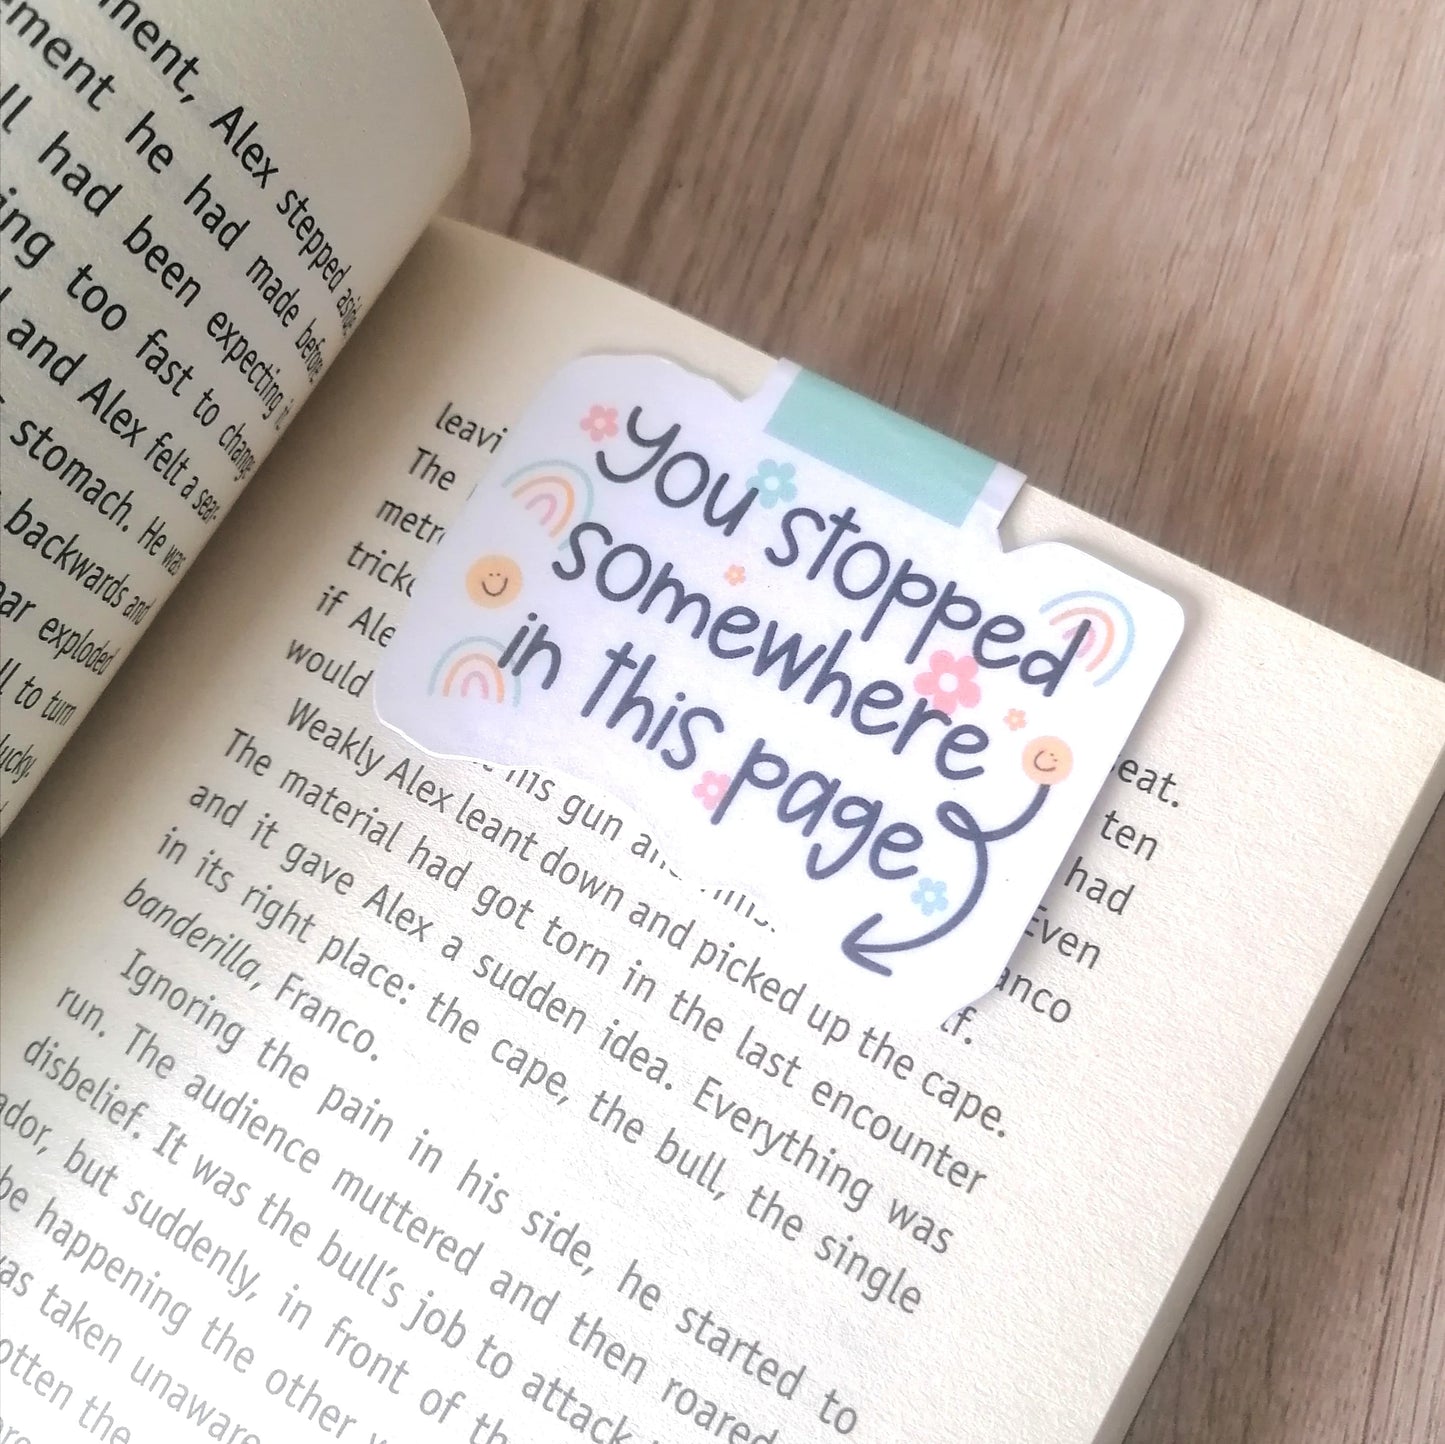 ment, Alex stepped aside
ement he had made before,
ll had been expecting it
ing too fast to change
and Alex felt a sear-
stomach. He was
backwards and
ear exploded
ll to turn
lucky.
you stopped
somewhere
in this page
leavi
The
metr
tricke
if Ale
would
eat.
ten
had
Even
anco
lf.
his gun and
Weakly Alex leant down and picked up the cape.
The material had got torn in the last encounter
and it gave Alex a sudden idea. Everything was
in its right place: the cape, the bull, the single
banderilla, Franco.
Ignoring the pain in his side, he started to
run. The audience muttered and then roared
disbelief. It was the bull's job to attack
ador, but suddenly, in front of th
be happening the other w
was taken unaware
otten the